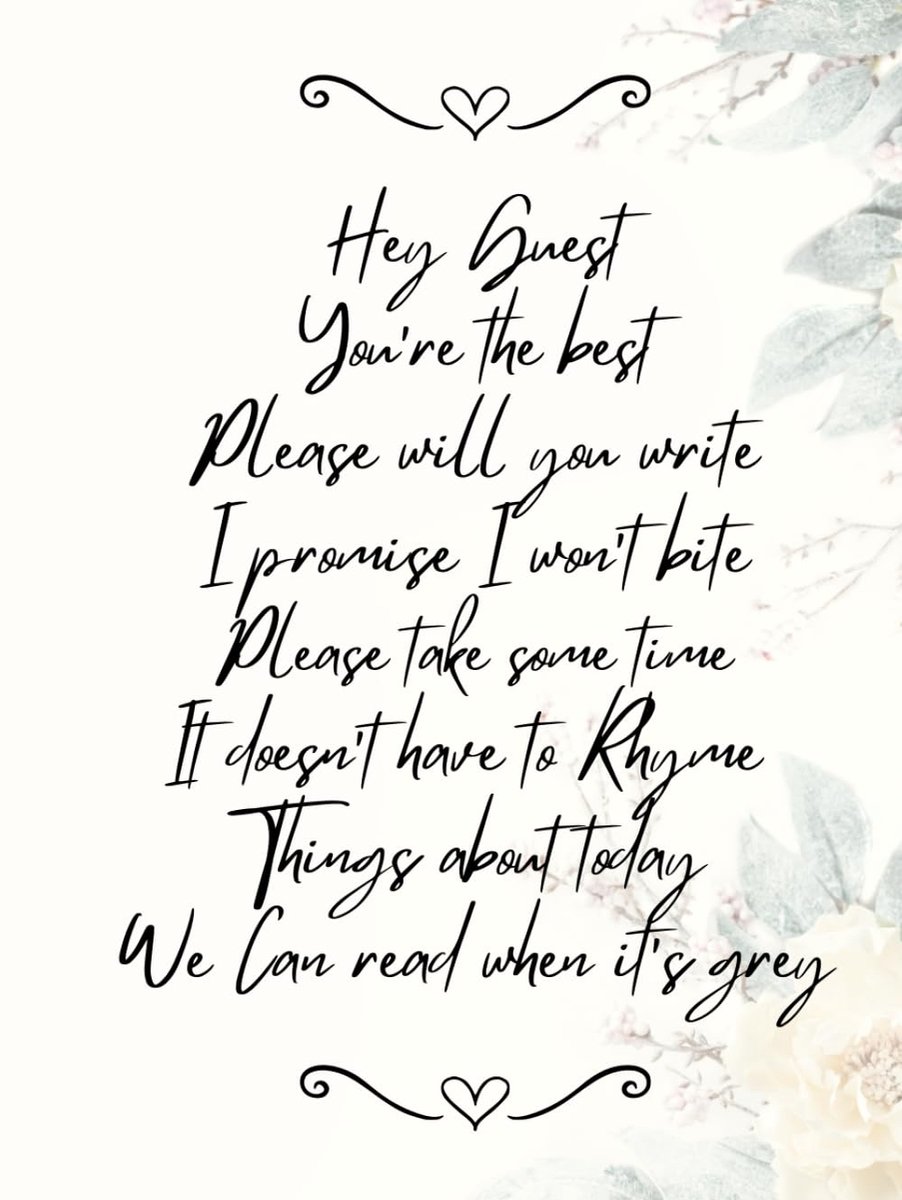 Hey Guest
You're the best
Please will you write
I promise I won't bite
Please take some time
It doesn't have to Rhyme
Things about today
We Can read when it's grey